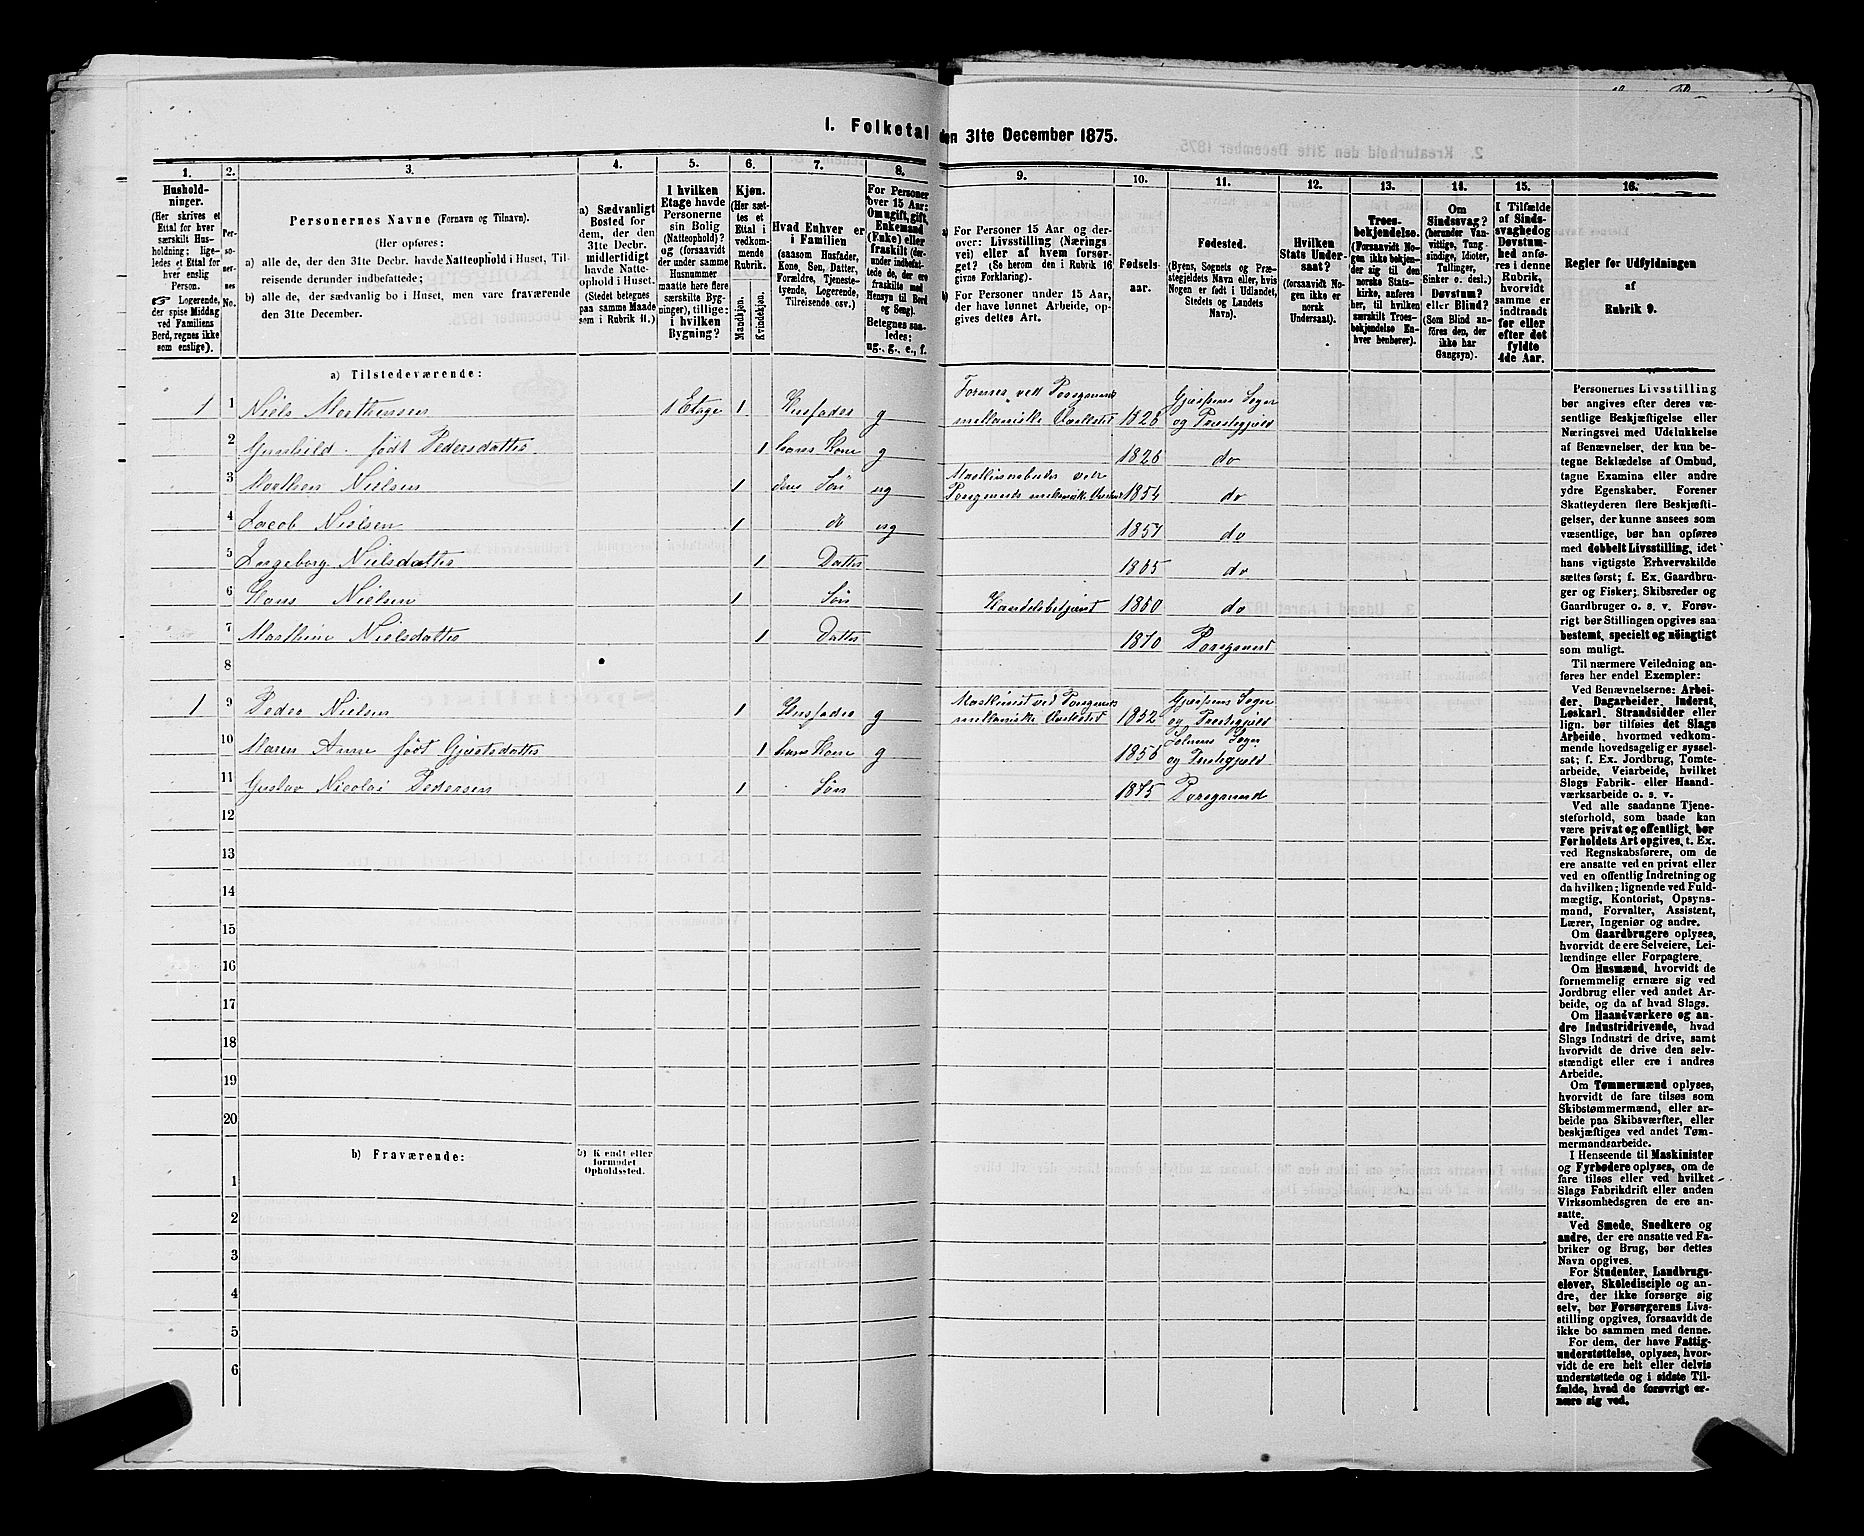 I. Folketal den 31te December 1875.
1.
Hushold-
ninger.
(Her skrives et
Ettal for hver
særskilt Hus-
holdning; lige-
ledes et Ettal for
hver enslig
Person.
☞ Logerende,
der spise Middag
ved Familiens
Bord, regnes ikke
som enslige).
2.
Per-
so-
ner-
nes
No.
3.
Personernes Navne (Fornavn og Tilnavn).
(Her opføres:
a) alle de, der den 31te Decbr. havde Natteophold i Huset, Til-
reisende derunder indbefattede;
b) alle de, der sædvanlig bo i Huset, men vare fraværende
den 31te December.
4.
a) Sædvanligt
Bosted for
dem, der den
31te Decbr.
midlertidigt
havde Natte-
ophold i Huset.
(Stedet betegnes
paa samme Maade
som i Rubrik 11.)
5.
I hvilken
Etage havde
Personerne
sin Bolig
(Natteophold)?
og (forsaavidt
der under samme
Husnummer
maatte høre flere
særskilte Byg-
ninger), tillige:
i hvilken
Bygning?
6.
Kjøn.
(Her sæt-
tes et
Ettal i
vedkom-
mende
Rubrik.
Mandkjøn.
Kvindekjøn.
7.
Hvad Enhver er
i Familien
(saasom Husfader,
Kone, Søn, Datter,
Forældre, Tjeneste-
tyende, Logerende,
Tilreisende osv.)
8.
For Personer
over 15 Aar:
Om ugift, gift,
Enkemand
(Enke) eller
fraskilt (der-
under indbefat-
tede de, der ere
fraskilte med
Hensyn til Bord
og Seng).
Betegnes saa-
ledes:
ug., g., e., f.
9.
a) For Personer 15 Aar og der-
over: Livsstilling (Nærings
vei) eller af hvem forsør-
get? (Se herom den i Rubrik 16
givne Forklaring).
b) For Personer under 15 Aar,
der have lønnet Arbeide, op-
gives dettes Art.
10.
Fødsels-
aar.
11.
Fødested.
(Byens, Sognets og Præ-
stegjeldets Navn eller, hvis
Nogen er født i Udlandet,
Stedets og Landets
Navn).
12.
Hvilken
Stats Under-
saat?
(forsaavidt No-
gen ikke er
norsk
Undersaat).
13.
Troes-
bekjendelse.
(Forsaavidt No-
gen ikke bekjen-
der sig til den
norske Stats-
kirke, anføres
her, til hvilken
særskilt Troes-
bekjendelse En-
hver henhører).
14.
Om
Sindssvag?
(herunder Van-
vittige, Tung-
sindige, Idioter,
Tullinger,
Sinker o. desl.)
Døvstum?
eller Blind?
(Som Blind an-
føres den, der
ikke har
Gangsyn).
15.
I Tilfælde
af Sinds-
svaghed og
Døvstum-
hed anfø-
res i denne
Rubrik,
hvorvidt
samme er
indtraadt
før eller
efter det
fyldte
4de Aar.
16.
Regler for Udfyldningen
af
Rubrik 9.
a) Tilstedeværende:
1 1 Niels Marthinsen 1 Etage 1 Husfader g Former ved Porsgrunds mekaniske Værksted 1828 Gjerpens Sogn og Prestegjeld
2 Gunhild født Pedersdatter 1 hans Kone g 1826 do
3 Marthen Nielsen 1 deres Søn ug Maskinarbeider ved Porsgrunds mekanisk Værksted 1854 do
4 Jacob Nielsen 1 do ug 1857 do
5 Ingeborg Nielsdatter 1 Datter 1865 do
6 Hans Nielsen 1 Søn Handelsbetjent 1860 do
7 Marthine Nielsdatter 1 Datter 1870 Porsgrund
8
1 9 Peder Nielsen 1 Husfader g Maskinist ved Porsgrunds mekaniske Værksted 1852 Gjerpens Sogn og Prestegjeld
10 Maren Anne født Gjertsdatter 1 hans Kone g 1856 Solums Sogn og Prestegjeld
11 Gustav Nicolai Pedersen 1 Søn 1875 Porsgrund
12
13
14
15
16
17
18
19
20
b) Fraværende:
b) Kjendt eller
formodet
Opholdssted.
1
2
3
4
5
6
Personernes Livsstilling
bør angives efter deres væ-
sentlige Beskjæftigelse eller
Næringsvei med Udelukkelse
af Benævnelser, der kun be-
tegne Beklædelse af Ombud,
tagne Examina eller andre
ydre Egenskaber. Forener
Skatteyderen flere Beskjæfti-
gelser, der kunne ansees som
væsentlige, bør han opføres
med dobbelt Livsstilling, idet
hans vigtigste Erhvervskilde
sættes først; f. Ex. Gaardbru-
ger og Fisker; Skibsreder og
Gaardbruger o. s. v. Forøv-
rigt bør Stillingen opgives saa
bestemt, specielt og nöiagtigt
som muligt.
Til nærmere Veiledning an-
føres her endel Exempler:
Ved Benævnelserne: Arbei-
der, Dagarbeider, Inderst,
Løskarl, Strandsidder eller
lign. bør tilføies det Slags
Arbeide, hvormed vedkom-
mende hovedsagelig er syssel-
sat; f. Ex. Jordbrug, Tomte-
arbeide, Veiarbeide, hvilket
Slags Fabrik- eller Haand-
værksarbeide o. s. v.
Ved alle saadanne Tjene-
steforhold, som baade kan
være privat og offentligt, bør
Forholdets Art opgives, t. Ex.
ved Regnskabsførere, om de
ere ansatte ved en privat eller
ved en offentlig Indretning og
da hvilken; lignende ved Fuld-
mægtig, Kontorist, Opsyns-
mand, Forvalter, Assistent,
Lærer, Ingeniør og andre.
Om Gaardbrugere oplyses,
hvorvidt de ere Selveiere, Lei-
lændinge eller Forpagtere.
Om Husmænd, hvorvidt de
fornemmelig ernære sig ved
Jordbrug eller ved andet Ar-
beide, og da af hvad Slags.
Om Haandværkere og an-
dre Industridrivende, hvad
Slags Industri de drive, samt
hvorvidt de drive den selv-
stændigt eller ere i andres
Arbeide.
Om Tømmermænd oplyses,
hvorvidt de fare tilsøs som
Skibstømmermænd, eller ar-
beide paa Skibsværfter, eller
beskjæftiges ved andet Tøm-
mermandsarbeide.
I Henseende til Maskinister
og Fyrbødere oplyses, om de
fare tilsøs eller ved hvilket
Slags Fabrikdrift eller anden
Virksomhedsgren de ere an-
satte.
Ved Smede, Snedkere og
andre, der ere ansatte ved Fa-
briker og Brug, bør dettes
Navn opgives.
For Studenter, Landbrugs-
elever, Skoledisciple og an-
dre, der ikke forsørge sig
selv, bør Forsørgerens Livs-
stilling opgives, forsaavidt de
ikke bo sammen med denne.
For dem, der have Fattig-
understøttelse, oplyses, hvor-
vidt de ere helt eller delvis
understøttede og i sidste Til-
fælde, hvad de forøvrigt er-
nære sig ved.